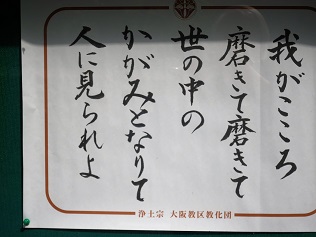 我がこころ
磨きて磨きて
世の中の
かがみとなりて
人に見られよ
浄土宗 大阪教区教化団